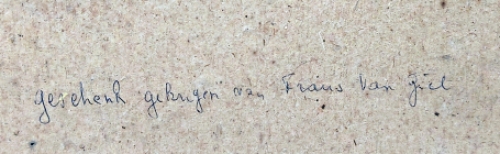 geschenk gekregen van Frans Van Giel